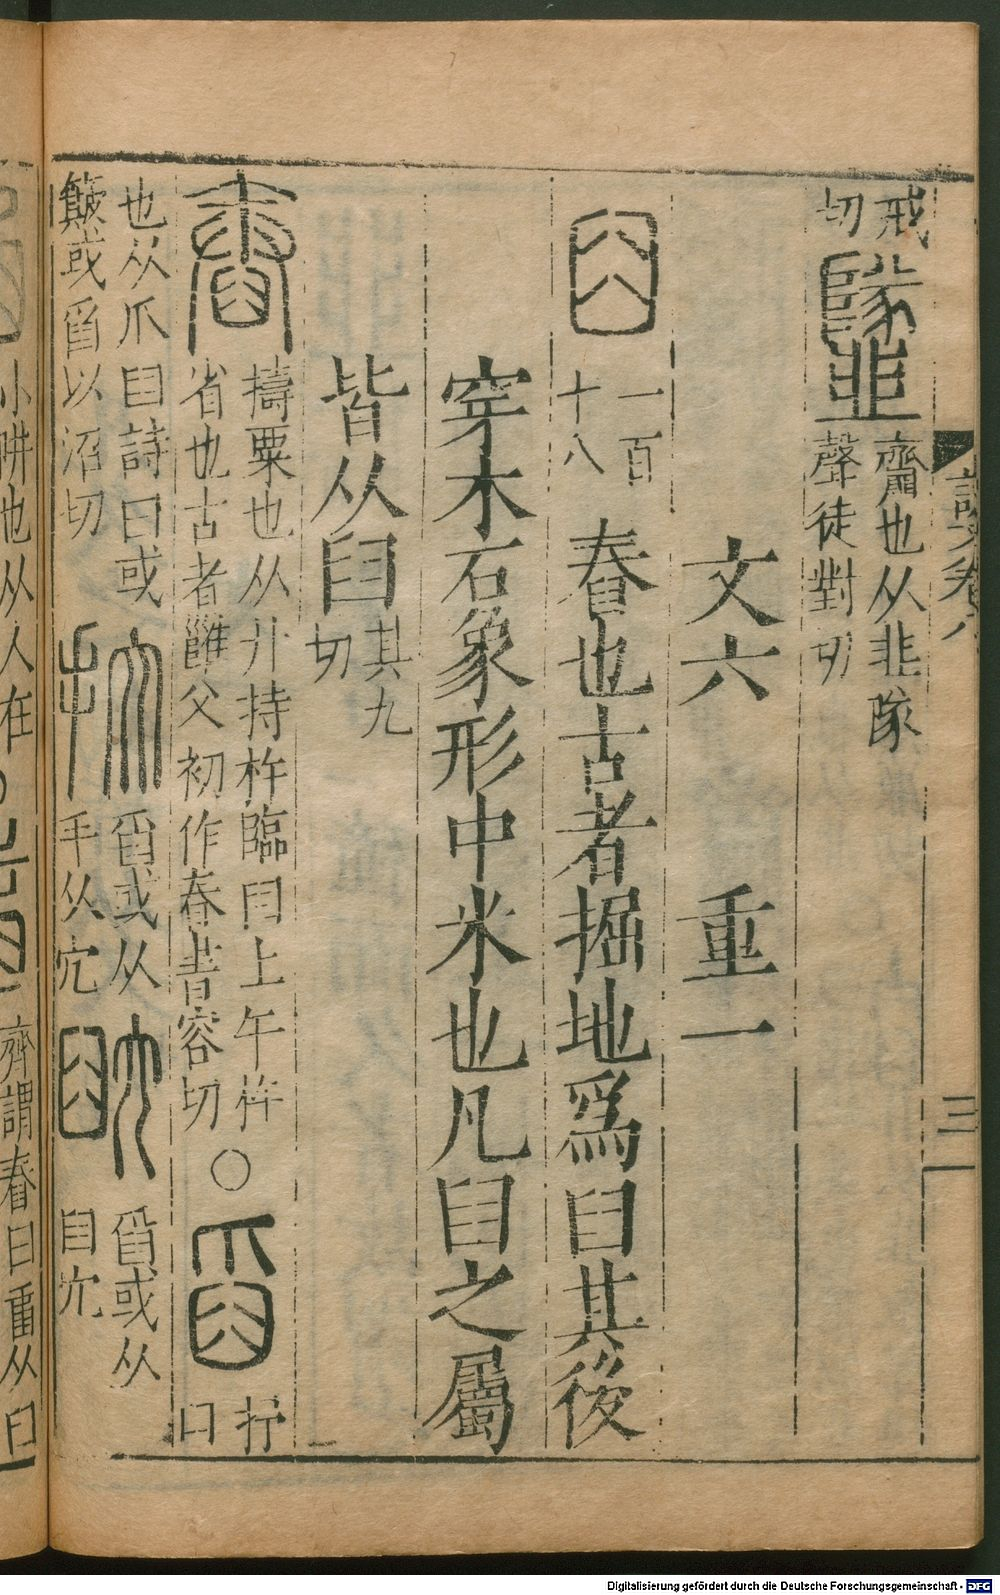 戒
切
齏也从韭隊
聲徒對切
文六 重一
一百
十八
舂也古者掘地爲臼其後
穿木石象形中米也凡臼之屬
皆从臼
其九
切
擣粟也从廾持杵臨臼上午杵
省也古者雝父初作舂書容切
〇
抒
臼
也从爪臼詩曰或
簸或舀以沼切
舀或从
手从宂
舀或从
臼宂
說文卷八
三
小阱也从人在
齊謂舂曰
从臼
Digitalisierung gefördert durch die Deutsche Forschungsgemeinschaft - DFG